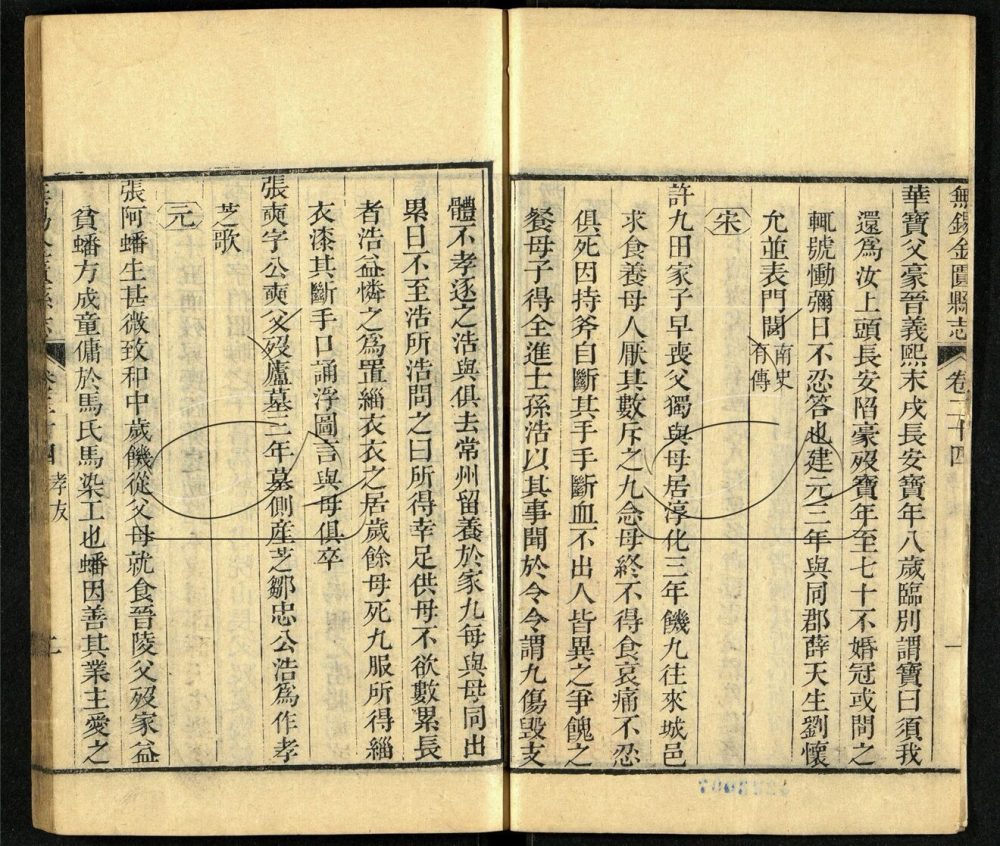 無錫金匱縣志
卷二十四
一
華寶父豪晉義熙末戍長安寶年八歲臨別謂寶曰須我
還爲汝上頭長安陷豪歿寶年至七十不婚冠或問之
輒號慟彌日不忍答也建元三年與同郡薛天生劉懷
允並表門閭南史
有傳
宋
許九田家子早喪父獨與母居淳化三年饑九往來城邑
求食養母人厭其數斥之九念母終不得食哀痛不忍
俱死因持斧自斷其手手斷血不出人皆異之爭餽之
餐母子得全進士孫浩以其事聞於令令謂九傷毀支
體不孝逐之浩與俱去常州留養於家九每與母同出
累日不至浩所浩問之曰所得幸足供母不欲數累長
者浩益憐之爲置緇衣衣之居歲餘母死九服所得緇
衣漆其斷手口誦浮圖言與母俱卒
張奭字公奭父歿廬墓三年墓側產芝鄒忠公浩爲作孝
芝歌
元
張阿蟠生甚微致和中歲饑從父母就食晉陵父歿家益
貧蟠方成童傭於馬氏馬染工也蟠因善其業主愛之
孝友
二